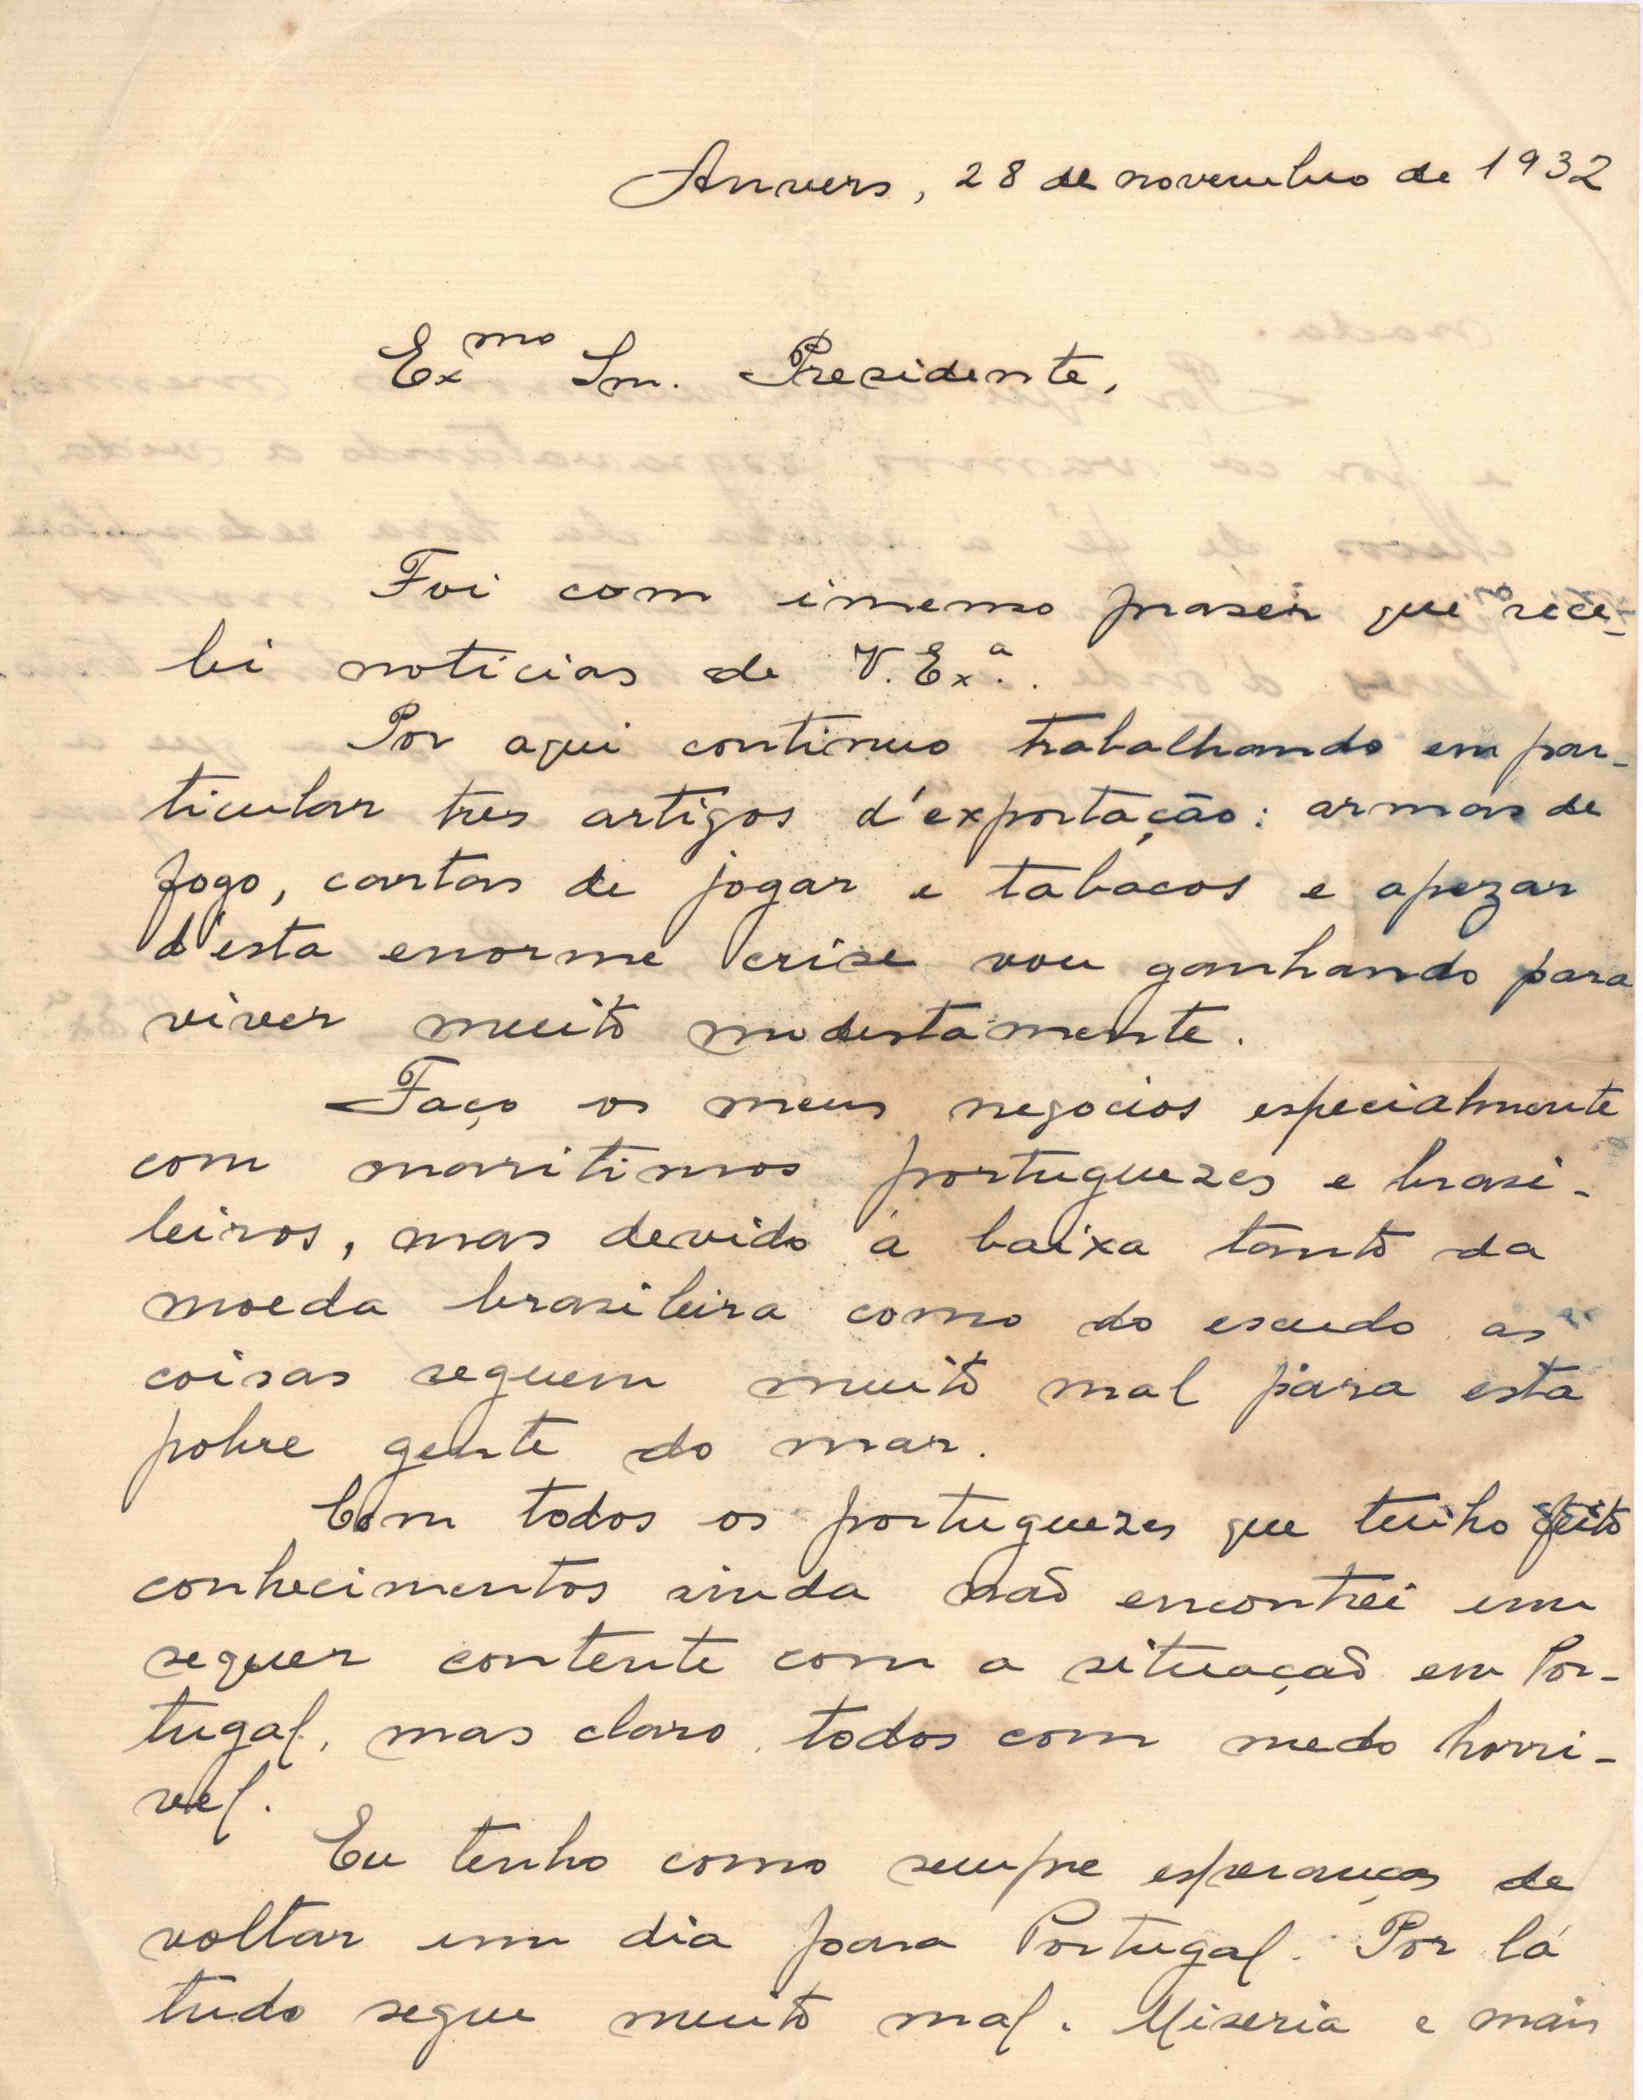 Anvers, 28 de novembro de 1932
Exmo Snr. Presidente,
Foi com imenso praser que rece-
bi noticias de V. Exa..
Por aqui continuo trabalhando em par-
ticular tres artigos d'exportação: armas de
fogo, cartas de jogar e tabacos e apezar
d'esta enorme crise vou ganhando para
viver muito modestamente.
Faço os meus negocios especialmente
com maritimos portuguezes e brasi-
leiros, mas devido á baixa tanto da
moeda brasileira como do escudo as
coisas seguem muito mal para esta
pobre gente do mar.
Com todos os portuguezes que tenho feito
conhecimentos ainda não encontrei um
sequer contente com a situação em Por-
tugal, mas claro, todos com medo horri-
vel.
Eu tenho como sempre esperanças de
voltar um dia para Portugal. Por lá
tudo segue muito mal. Miseria e mais